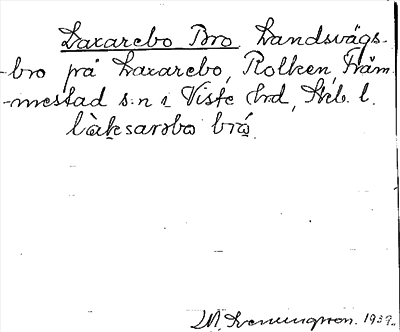 Laxarebo Bro, Landsvägs-
-bro på Laxarebo, Rolken, Främ-
-mestad s:n i Viste hrd, Skb. l.
là̤ksarəbo brá̤.
1939.